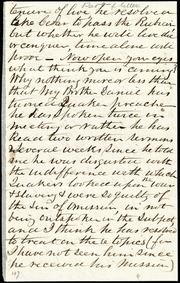 tenure of live he resolve
take becn to pass the Rubicon
but whether he will live die
or conquer, time alone will
prove — Now open your eyes
what think you is coming?
Why nothing more or less than
that My Brother Daniel has
turned Quaker preacher
he has spoken twice in
meeting or rather he has
read two written sermons
Several weeks since he told
me he was disgusted with
the indifference with which
Quakers looked upon the war
& slavery & were so guilty of
the sin of omission in not
being outspoken on the Subject
and I think he has resolved
to treat on these topics (for
I have not seen him since
he received his Mission)